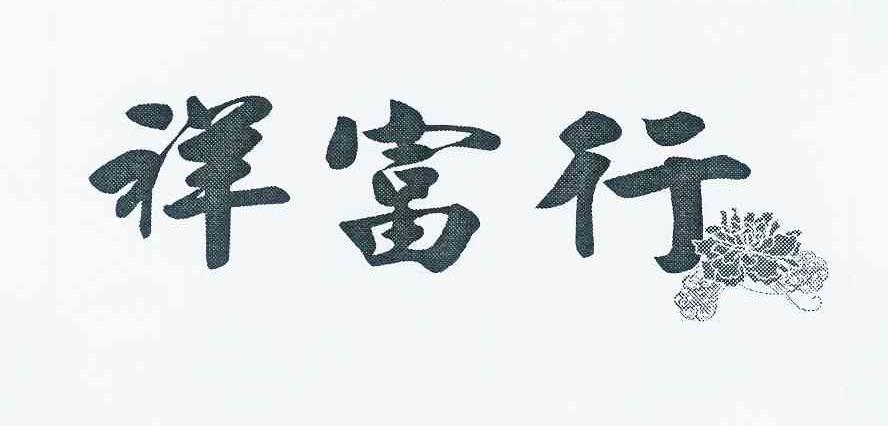 祥富行